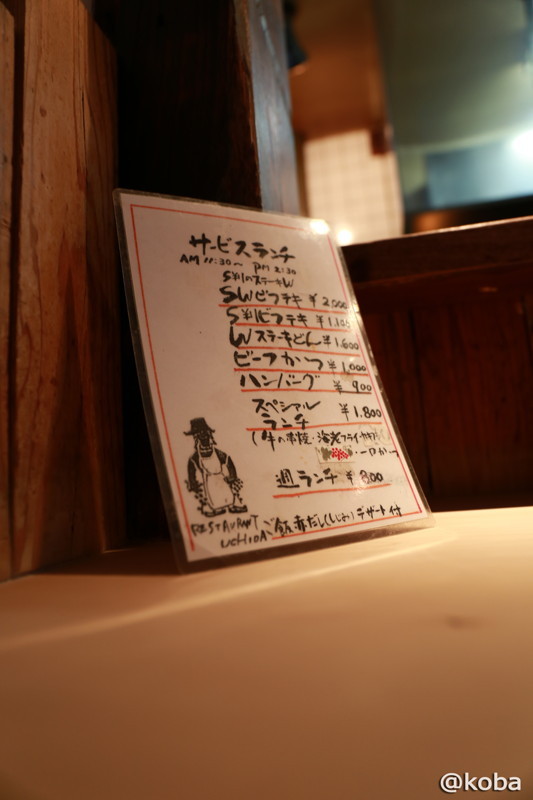 サービスランチ
AM 11:30〜 PM 2:30
S判のステーキW
SWビフテキ ¥2,000
S判ビフテキ ¥1,100
Wステーキどん ¥1,600
ビーフかつ ¥1,000
ハンバーグ ¥900
スペシャル
ランチ ¥1,800
(牛の常陸・海老フライ・カキフ
・一口かつ
週ランチ ¥800
RESTAURANT
UCHIDA
ご飯 赤だし(しじみ) デザート付
@koba